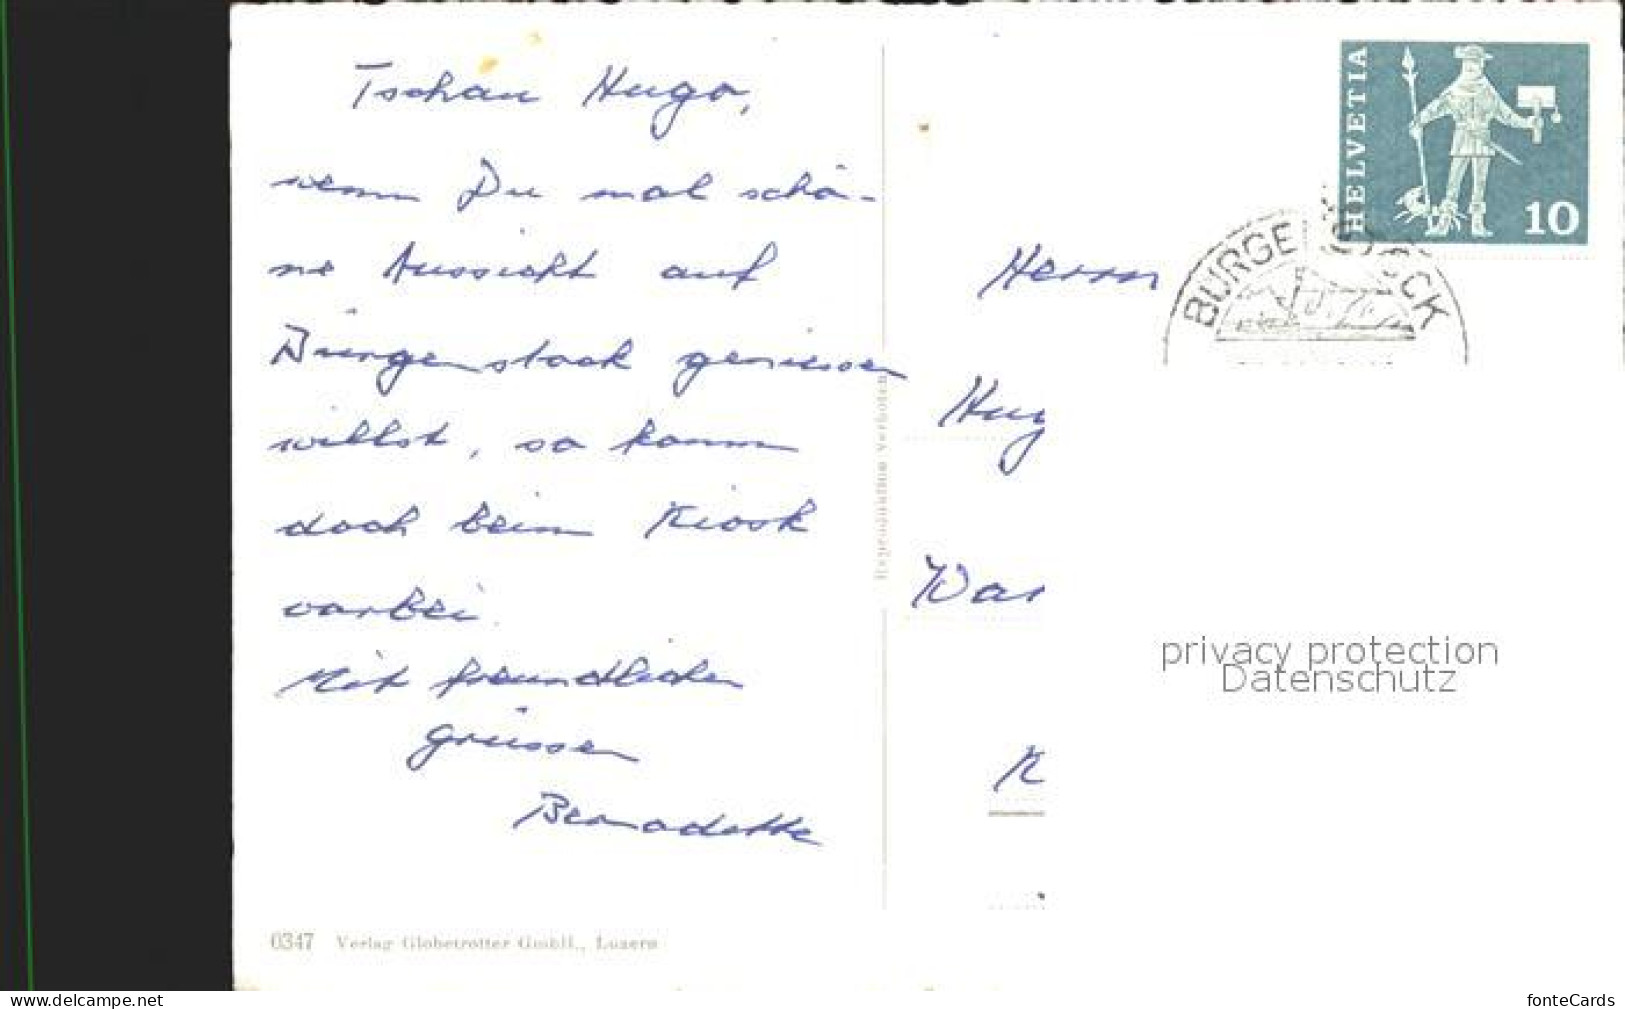 Tschau Hugo,
wenn Du mal schö-
ne Aussicht auf
Bürgenstock geniessen
willst, so komm
doch beim Kiosk
vorbei.
Mit freundlichen
Grüssen
Bernadette
0347 Verlag Globetrotter GmbH., Luzern
Reproduktion verboten
HELVETIA
10
BÜRGENSTOCK
Herrn
Hug
War
K
privacy protection
Datenschutz
www.delcampe.net
fonteCards